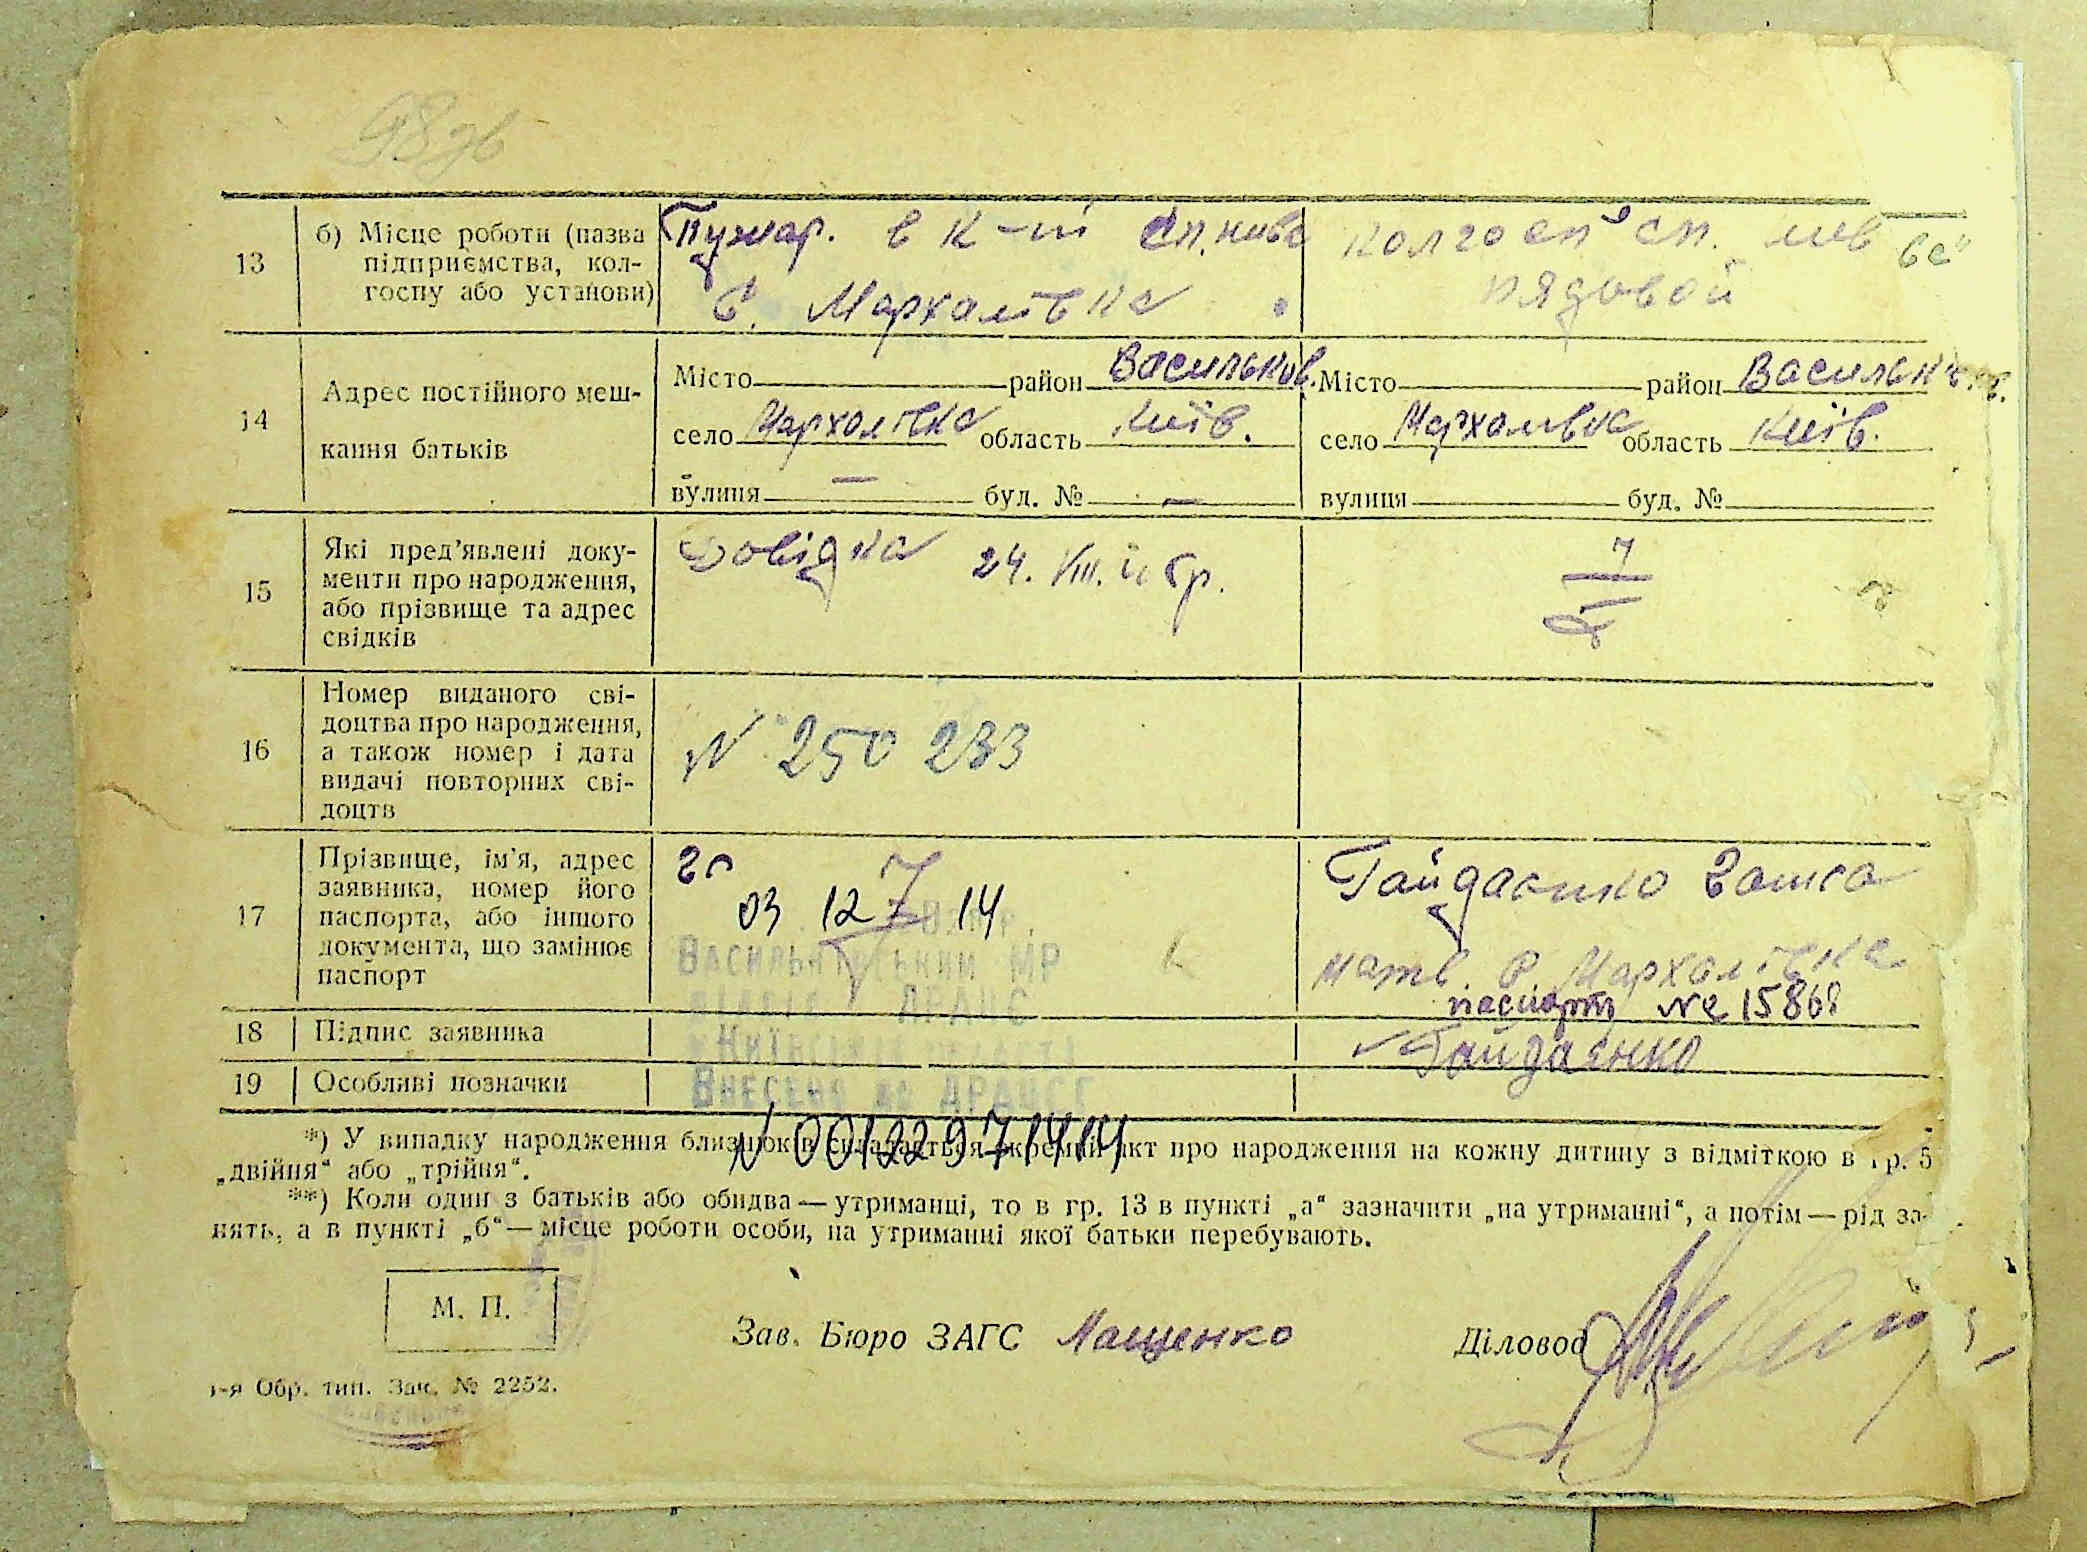 98зв
13 б) Місце роботи (назва підприємства, колгоспу або установи)
в к-ті
с. Мархалівка
колгосп сп.
рядовой
14 Адрес постійного мешкання батьків
Місто район Васильков.
село Мархалівка область Київ.
вулиця — буд. № —
Місто район Васильков.
село Мархалівка область Київ.
вулиця буд. №
15 Які пред'явлені документи про народження, або прізвище та адрес свідків
Довідка 24. VIII.
16 Номер виданого свідоцтва про народження, а також номер і дата видачі повторних свідоцтв
N 250 233
17 Прізвище, ім'я, адрес заявника, номер його паспорта, або іншого документа, що замінює паспорт
03 12 14
Васильківський МР
відділ ДРАЦС
Київській області
Внесено до ДРАЦСГ
N 00122971414
Гайдаєнко
мать с. Мархалівка
паспорт № 15868
18 Підпис заявника
Гайдаєнко
19 Особливі позначки
*) У випадку народження близнюків складається окремий акт про народження на кожну дитину з відміткою в гр. 5
„двійня“ або „трійня“.
**) Коли один з батьків або обидва — утриманці, то в гр. 13 в пункті „а“ зазначити „на утриманні“, а потім — рід за-
нять, а в пункті „б“ — місце роботи особи, на утриманні якої батьки перебувають.
М. П.
Зав. Бюро ЗАГС Мащенко
Діловод
1-я Обр. тип. Зак. № 2252.